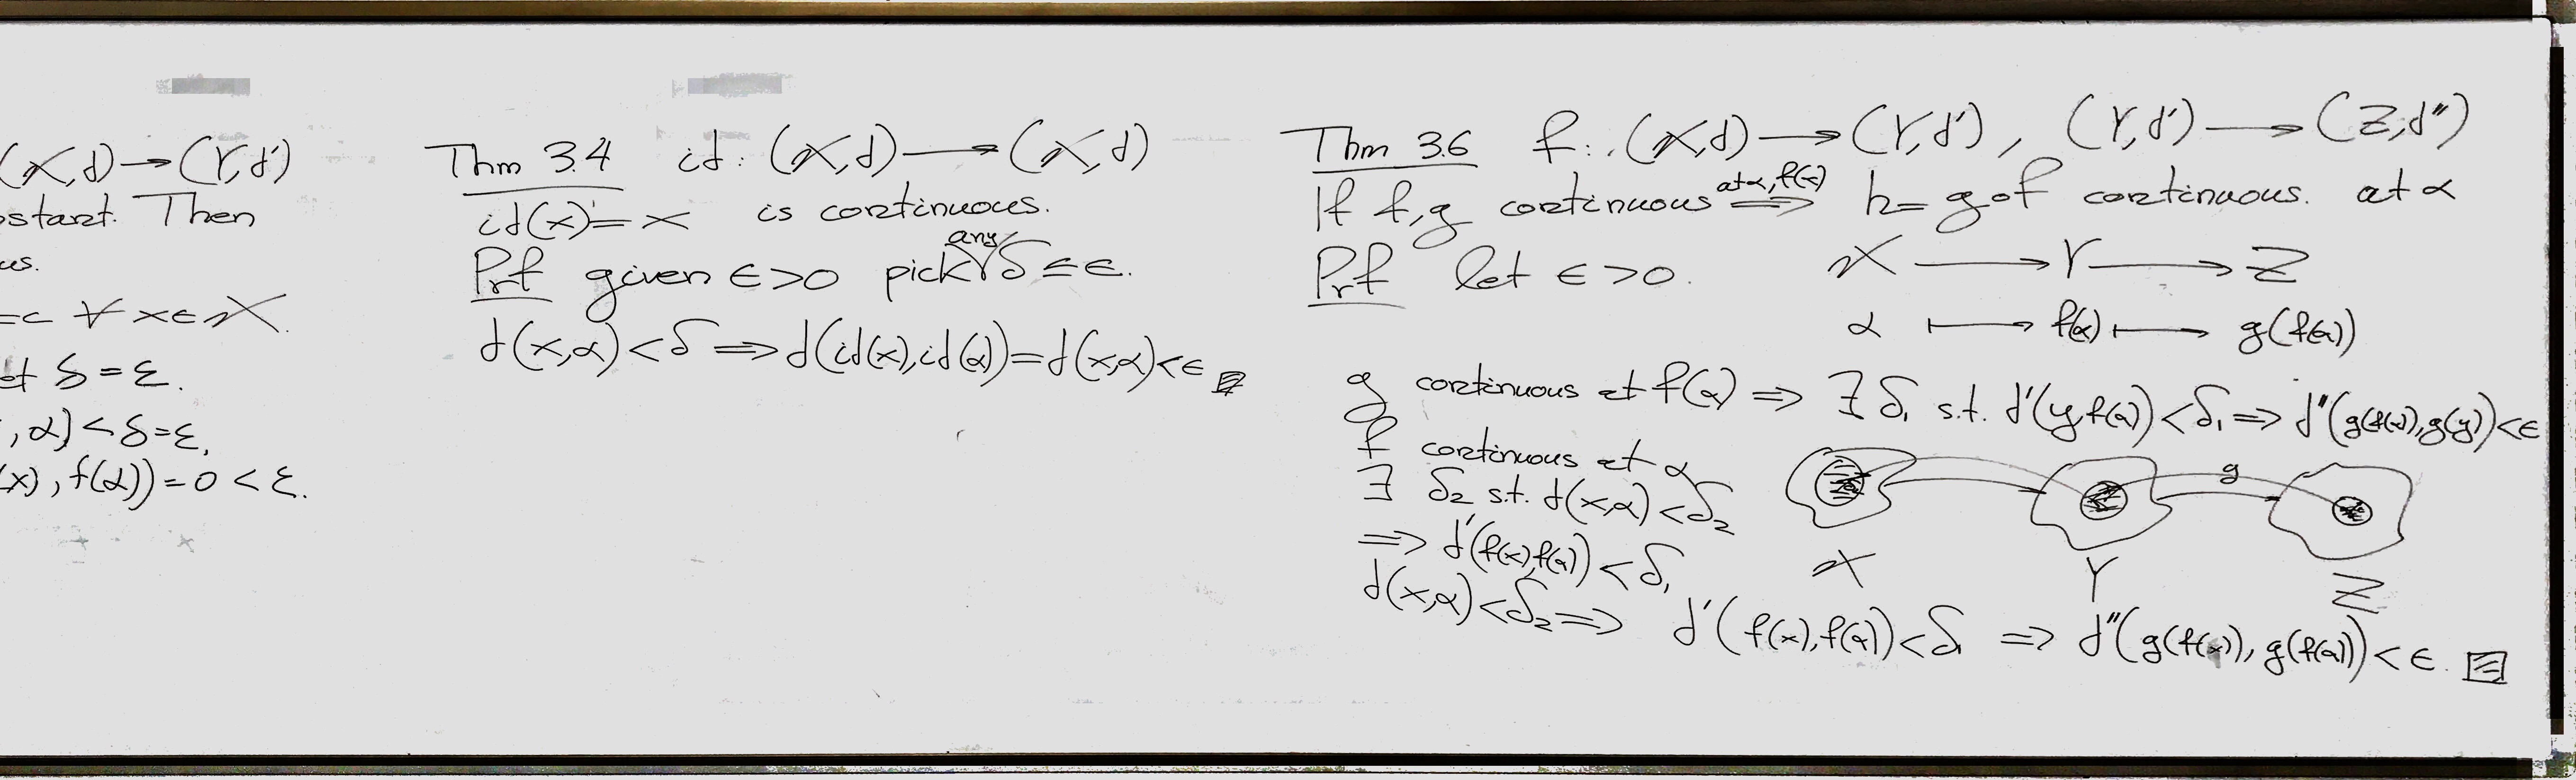 (X,d) → (Y,d')
stant. Then
us.
=c ∀ x∈X.
et δ=ε.
,α)<δ=ε,
(x), f(α))=0<ε.
Thm 3.4 id: (X,d) → (X,d)
id(x)=x is continuous.
any
Prf given ε>0 pick δ≤ε.
d(x,α)<δ ⇒ d(id(x),id(α))=d(x,α)<ε
Thm 3.6 f: (X,d) → (Y,d'), (Y,d') → (Z,d'')
at α, f(α)
If f,g continuous ⇒ h=g∘f continuous. at α
Prf let ε>0.
X → Y → Z
α ↦ f(α) ↦ g(f(α))
g continuous at f(α) ⇒ ∃ δ₁ s.t. d'(y,f(α))<δ₁ ⇒ d''(g(f(α)),g(y))<ε
f continuous at α
∃ δ₂ s.t. d(x,α)<δ₂
⇒ d'(f(x),f(α))<δ₁
g
X Y Z
d(x,α)<δ₂ ⇒ d'(f(x),f(α))<δ₁ ⇒ d''(g(f(x)),g(f(α)))<ε.